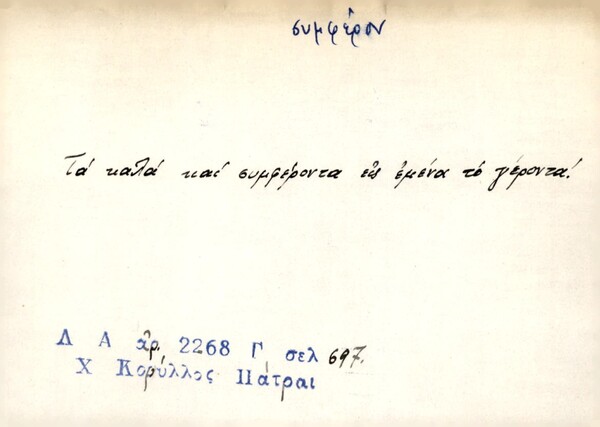 συμφέρον
Τά καλά καί συμφέροντα εἰς ἐμένα τό γέροντα!
Λ Α ἀρ. 2268 Γ σελ 697.
Χ Κορύλλος Πάτραι